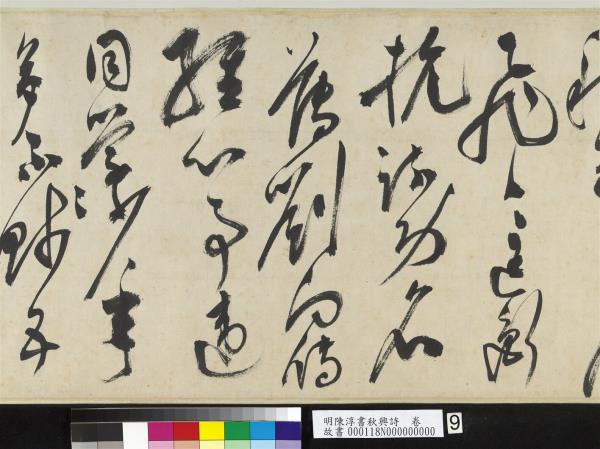 飛〻匡衡
抗疏功名
薄劉向傳
經心事違
同學少年
多不賤五
明陳淳書秋興詩 卷
故書000118N000000000
9